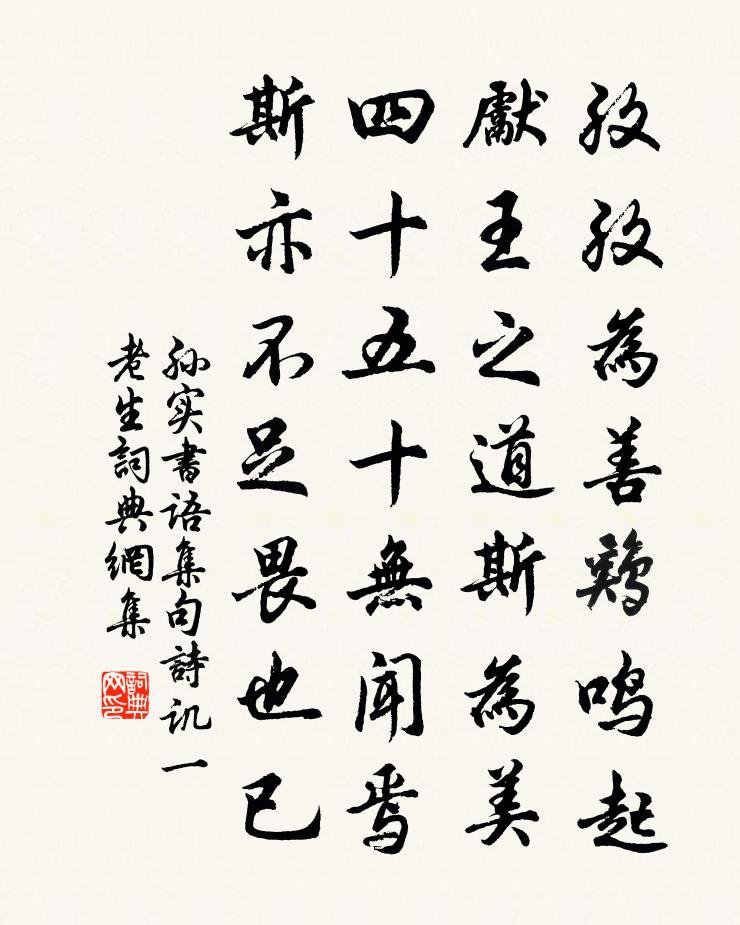 孜孜為善鷄鸣起
獻王之道斯為美
四十五十無聞焉
斯亦不足畏也已
孙实書语集句詩讥一
老生詞典網集
詞典网印